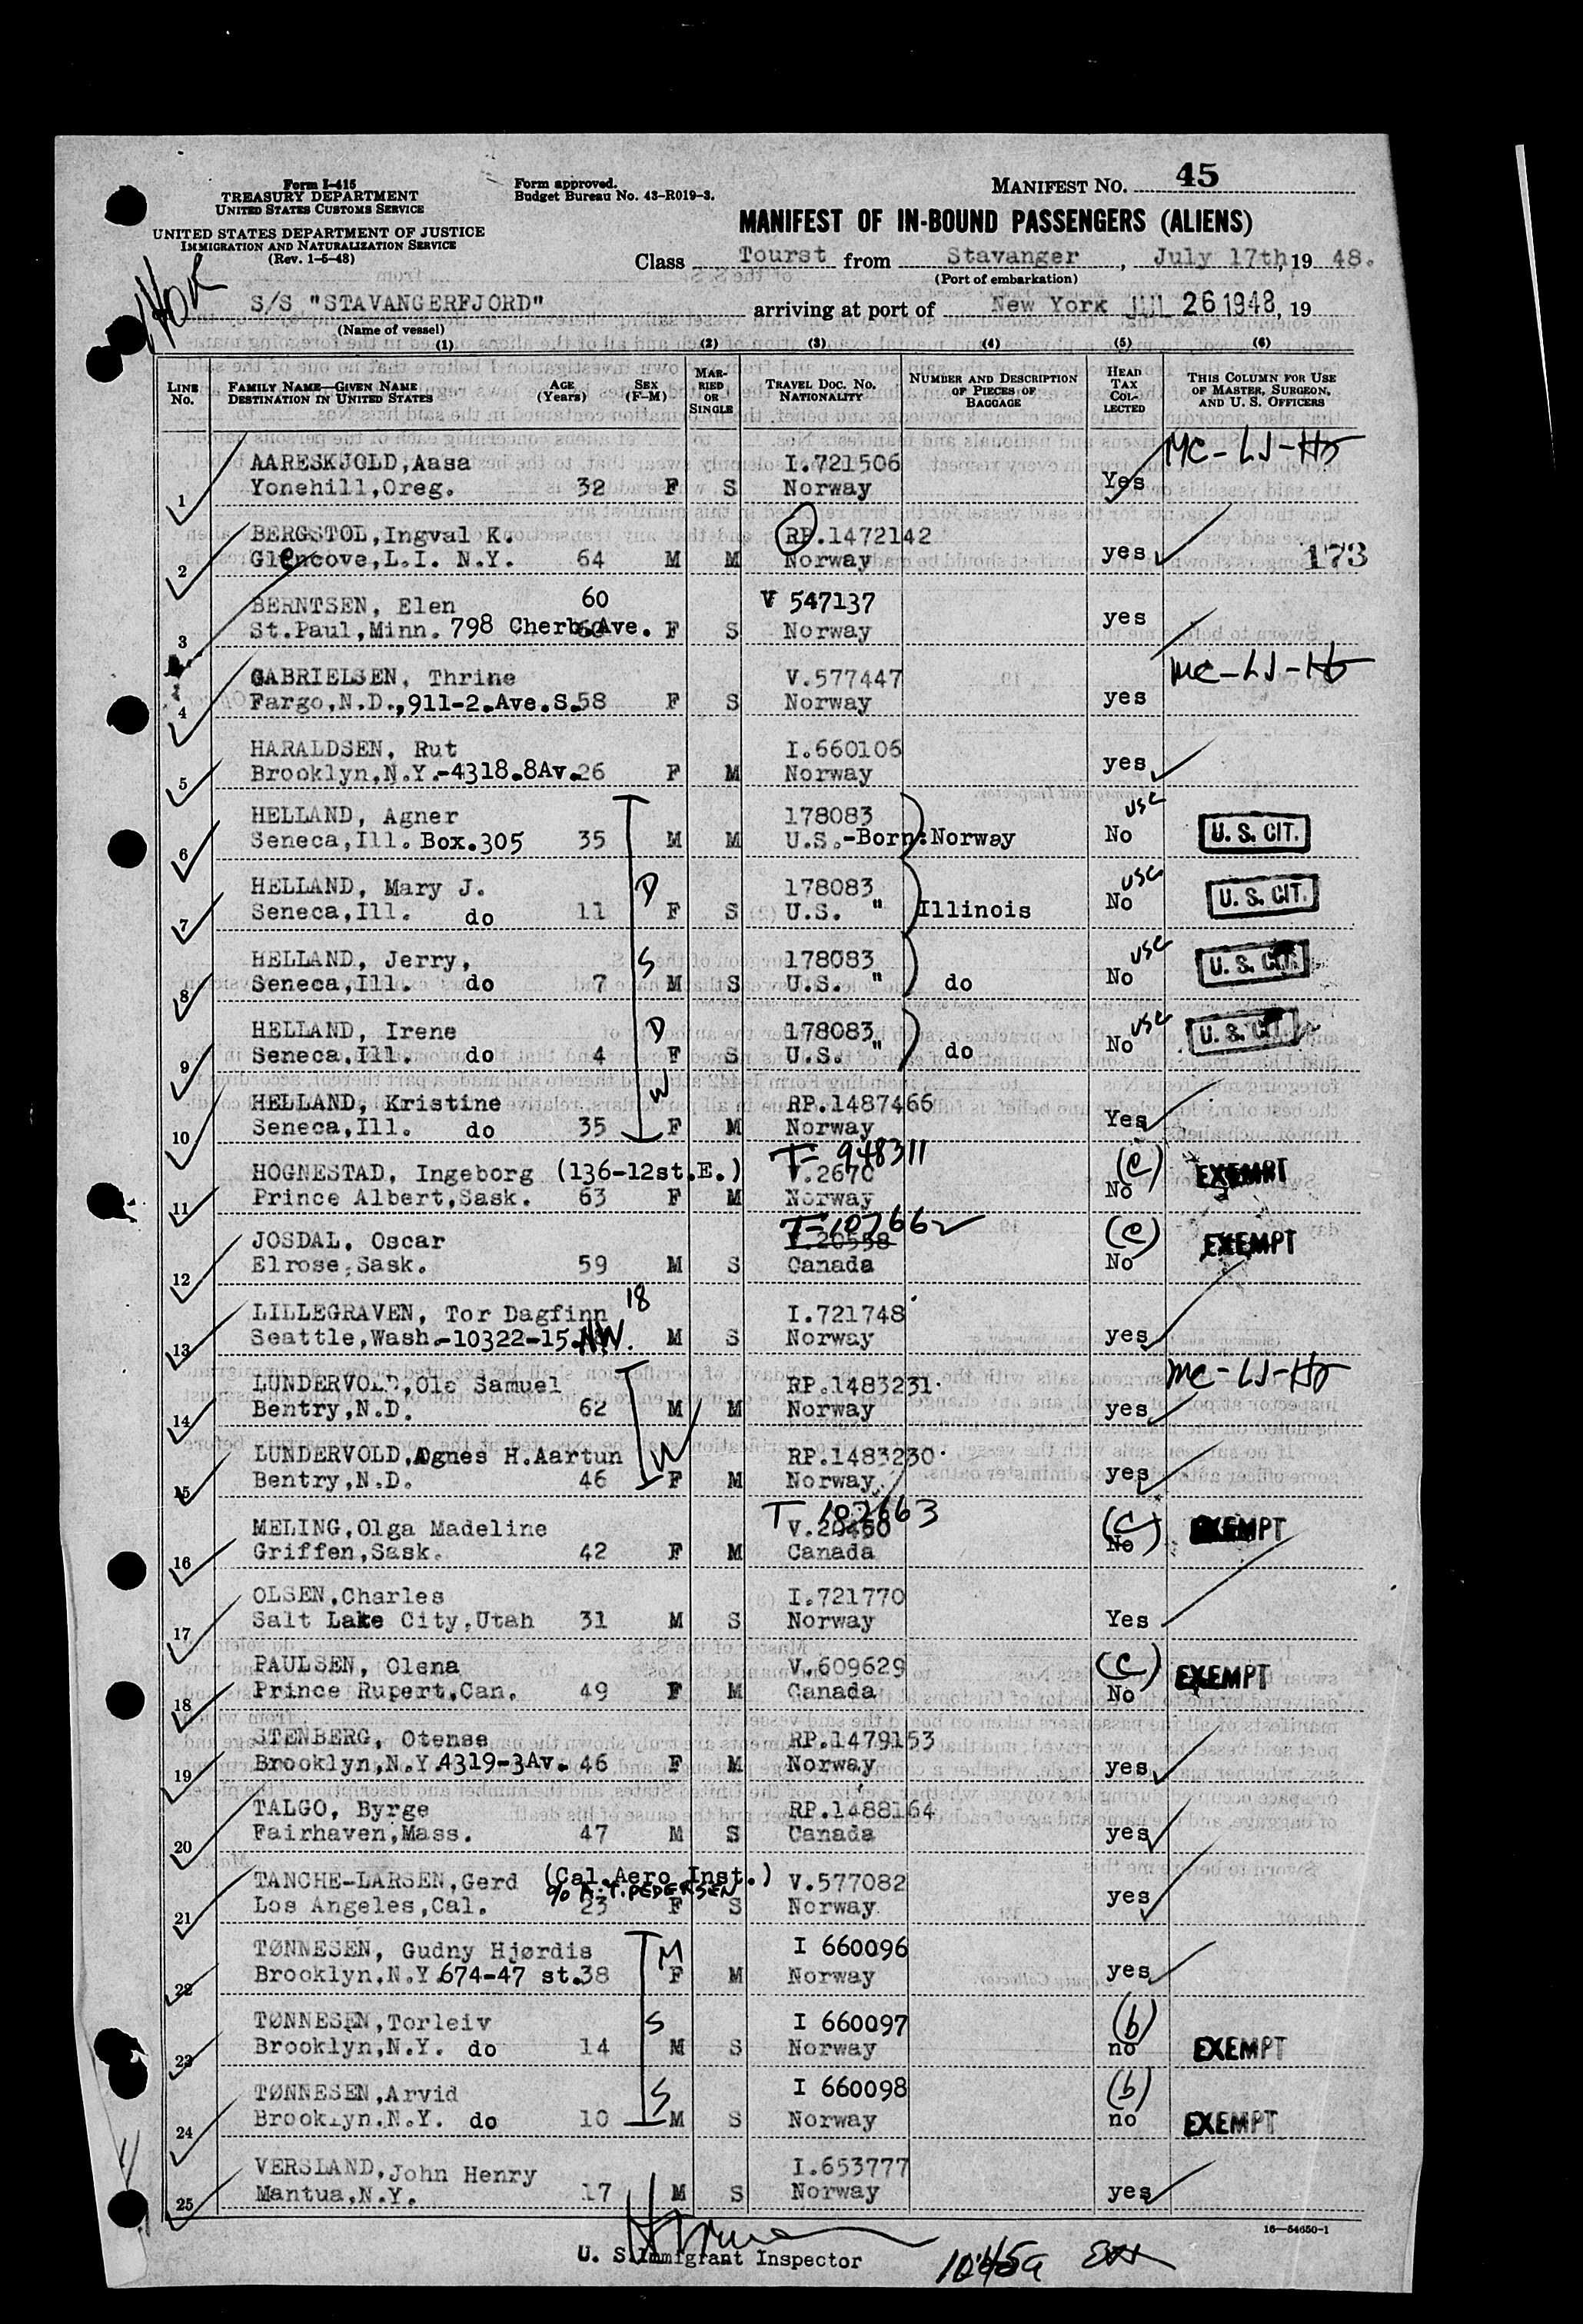 Form I-415
TREASURY DEPARTMENT
UNITED STATES CUSTOMS SERVICE
UNITED STATES DEPARTMENT OF JUSTICE
IMMIGRATION AND NATURALIZATION SERVICE
(Rev. 1-5-48)
Form approved.
Budget Bureau No. 43-R019-3.
MANIFEST NO. 45
MANIFEST OF IN-BOUND PASSENGERS (ALIENS)
Class Tourst from Stavanger, July 17th, 19 48.
(Port of embarkation)
S/S "STAVANGERFJORD" arriving at port of New York JUL 26 1948, 19
(Name of vessel)
(1) (2) (3) (4) (5) (6)
LINE No. FAMILY NAME—GIVEN NAME DESTINATION IN UNITED STATES AGE (Years) SEX (F-M) MARRIED OR SINGLE TRAVEL DOC. NO. NATIONALITY NUMBER AND DESCRIPTION OF PIECES OF BAGGAGE HEAD TAX COLLECTED THIS COLUMN FOR USE OF MASTER, SURGEON, AND U. S. OFFICERS
AARESKJOLD, Aasa I.721506 MC-LJ-
1 Yonehill, Oreg. 32 F S Norway Yes
BERGSTOL, Ingval K. RP.1472142
2 Glencove, L.I. N.Y. 64 M M Norway yes 173
BERNTSEN, Elen 60 V 547137
3 St.Paul, Minn. 798 Cherb.Ave. F S Norway yes
GABRIELSEN, Thrine V.577447 MC-LJ-
4 Fargo, N.D., 911-2.Ave.S. 58 F S Norway yes
HARALDSEN, Rut I.660106
5 Brooklyn, N.Y.-4318.8Av. 26 F M Norway yes
HELLAND, Agner 178083 USC
6 Seneca, Ill. Box.305 35 M M U.S.-Born: Norway No U. S. CIT.
HELLAND, Mary J. D 178083 USC
7 Seneca, Ill. do 11 F S U.S. " Illinois No U. S. CIT.
HELLAND, Jerry, S 178083 USC
8 Seneca, Ill. do 7 M S U.S. " do No U. S. CIT.
HELLAND, Irene D 178083 USC
9 Seneca, Ill. do 4 F S U.S. " do No U. S. CIT.
HELLAND, Kristine W RP.1487466
10 Seneca, Ill. do 35 F M Norway Yes
HOGNESTAD, Ingeborg (136-12st.E.) T-948311 V.2670 (C) EXEMPT
11 Prince Albert, Sask. 63 F M Norway No
JOSDAL, Oscar T-107662 V.20558 (C) EXEMPT
12 Elrose, Sask. 59 M S Canada No
LILLEGRAVEN, Tor Dagfinn 18 I.721748
13 Seattle, Wash.-10322-15.NW. M S Norway yes
LUNDERVOLD, Ole Samuel RP.1483231 MC-LJ-
14 Bentry, N.D. 62 M M Norway yes
LUNDERVOLD, Agnes H.Aartun W RP.1483230
15 Bentry, N.D. 46 F M Norway yes
MELING, Olga Madeline T 107663 V.20450 (C) EXEMPT
16 Griffen, Sask. 42 F M Canada No
OLSEN, Charles I.721770
17 Salt Lake City, Utah 31 M S Norway Yes
PAULSEN, Olena V.609629 (C) EXEMPT
18 Prince Rupert, Can. 49 F M Canada No
STENBERG, Otense RP.1479153
19 Brooklyn, N.Y. 4319-3Av. 46 F M Norway yes
TALGO, Byrge RP.1488164
20 Fairhaven, Mass. 47 M S Canada yes
TANCHE-LARSEN, Gerd (Cal.Aero Inst.) V.577082
c/o A.T.PEDERSEN
21 Los Angeles, Cal. 23 F S Norway yes
TØNNESEN, Gudny Hjørdis M I 660096
22 Brooklyn, N.Y. 674-47 st. 38 F M Norway yes
TØNNESEN, Torleiv S I 660097 (b)
23 Brooklyn, N.Y. do 14 M S Norway no EXEMPT
TØNNESEN, Arvid S I 660098 (b)
24 Brooklyn, N.Y. do 10 M S Norway no EXEMPT
VERSLAND, John Henry I.653777
25 Mantua, N.Y. 17 M S Norway yes
16—54650-1
U. S. Immigrant Inspector